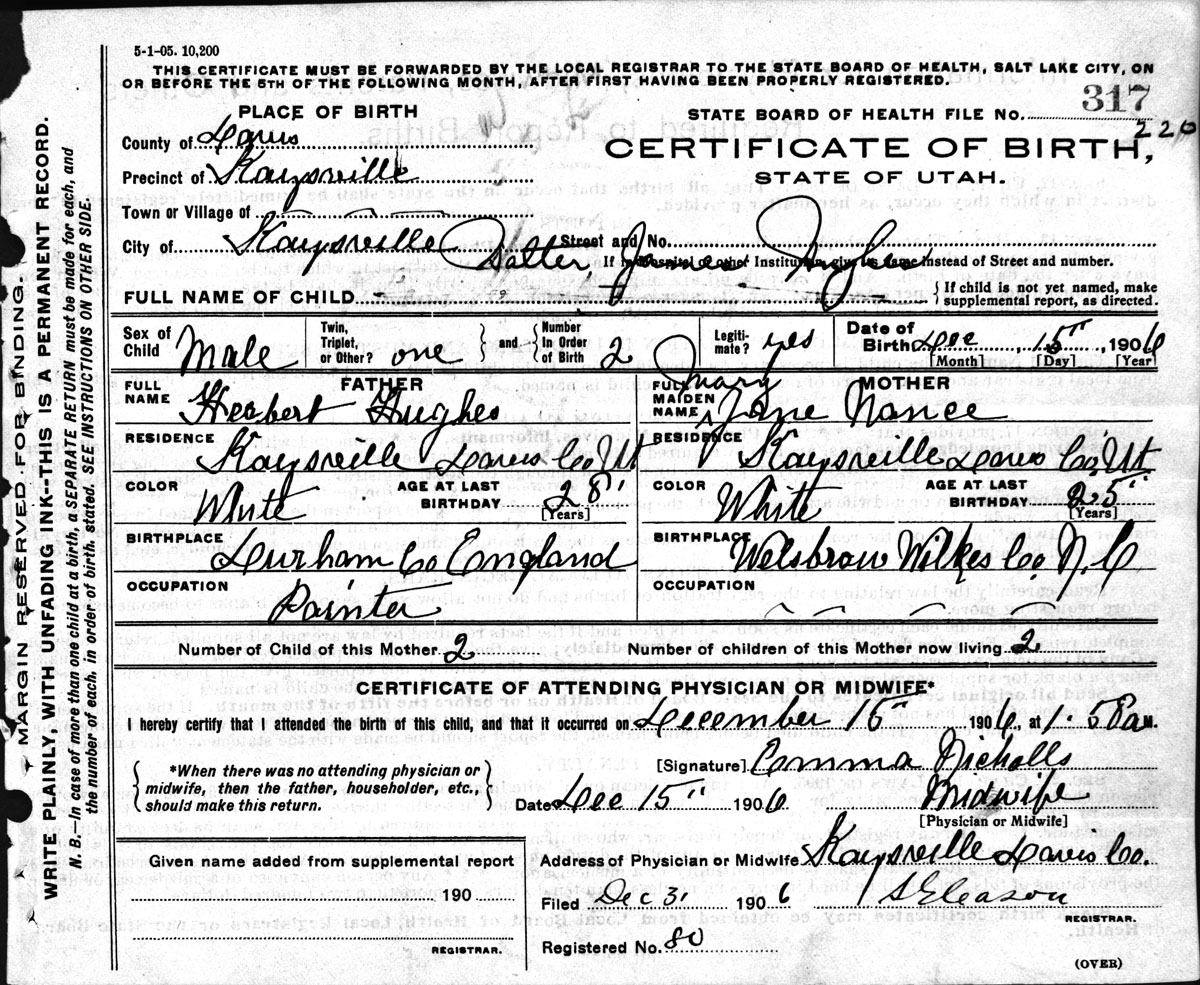 5-1-05. 10,200
THIS CERTIFICATE MUST BE FORWARDED BY THE LOCAL REGISTRAR TO THE STATE BOARD OF HEALTH, SALT LAKE CITY, ON
OR BEFORE THE 5TH OF THE FOLLOWING MONTH, AFTER FIRST HAVING BEEN PROPERLY REGISTERED.
PLACE OF BIRTH
STATE BOARD OF HEALTH FILE NO. 317
220
County of Davis
CERTIFICATE OF BIRTH,
Precinct of Kaysville
STATE OF UTAH.
Town or Village of
City of Kaysville Street and No.
If in Hospital or other Institution, give its name instead of Street and number.
Walter James Hughes
FULL NAME OF CHILD
{ If child is not yet named, make
supplemental report, as directed.
Sex of Child Male
Twin, Triplet, or Other? one
{ and } Number in Order of Birth 2
Legiti- mate? yes
Date of Birth Dec 15" 1906
[Month] [Day] [Year]
FATHER
FULL NAME Herbert Hughes
RESIDENCE Kaysville Davis Co Ut
COLOR White
AGE AT LAST BIRTHDAY 28"
[Years]
BIRTHPLACE Durham Co England
OCCUPATION Painter
MOTHER
FULL MAIDEN NAME Mary Jane Nance
RESIDENCE Kaysville Davis Co, Ut
COLOR White
AGE AT LAST BIRTHDAY 25"
[Years]
BIRTHPLACE Wilkes Co. N.C
OCCUPATION
Number of Child of this Mother 2 Number of children of this Mother now living 2
CERTIFICATE OF ATTENDING PHYSICIAN OR MIDWIFE*
I hereby certify that I attended the birth of this child, and that it occurred on December 15" 1906, at 1.58 a M.
[Signature] Emma Nicholls
{ *When there was no attending physician or
midwife, then the father, householder, etc.,
should make this return. }
Date Dec 15" 1906 Midwife
[Physician or Midwife]
Given name added from supplemental report
190
REGISTRAR.
Address of Physician or Midwife Kaysville Davis Co.
Filed Dec 31 1906 Gleason
REGISTRAR.
Registered No. 80
(OVER)
MARGIN RESERVED FOR BINDING.
WRITE PLAINLY, WITH UNFADING INK--THIS IS A PERMANENT RECORD.
N. B.—In case of more than one child at a birth, a SEPARATE RETURN must be made for each, and
the number of each, in order of birth, stated. SEE INSTRUCTIONS ON OTHER SIDE.